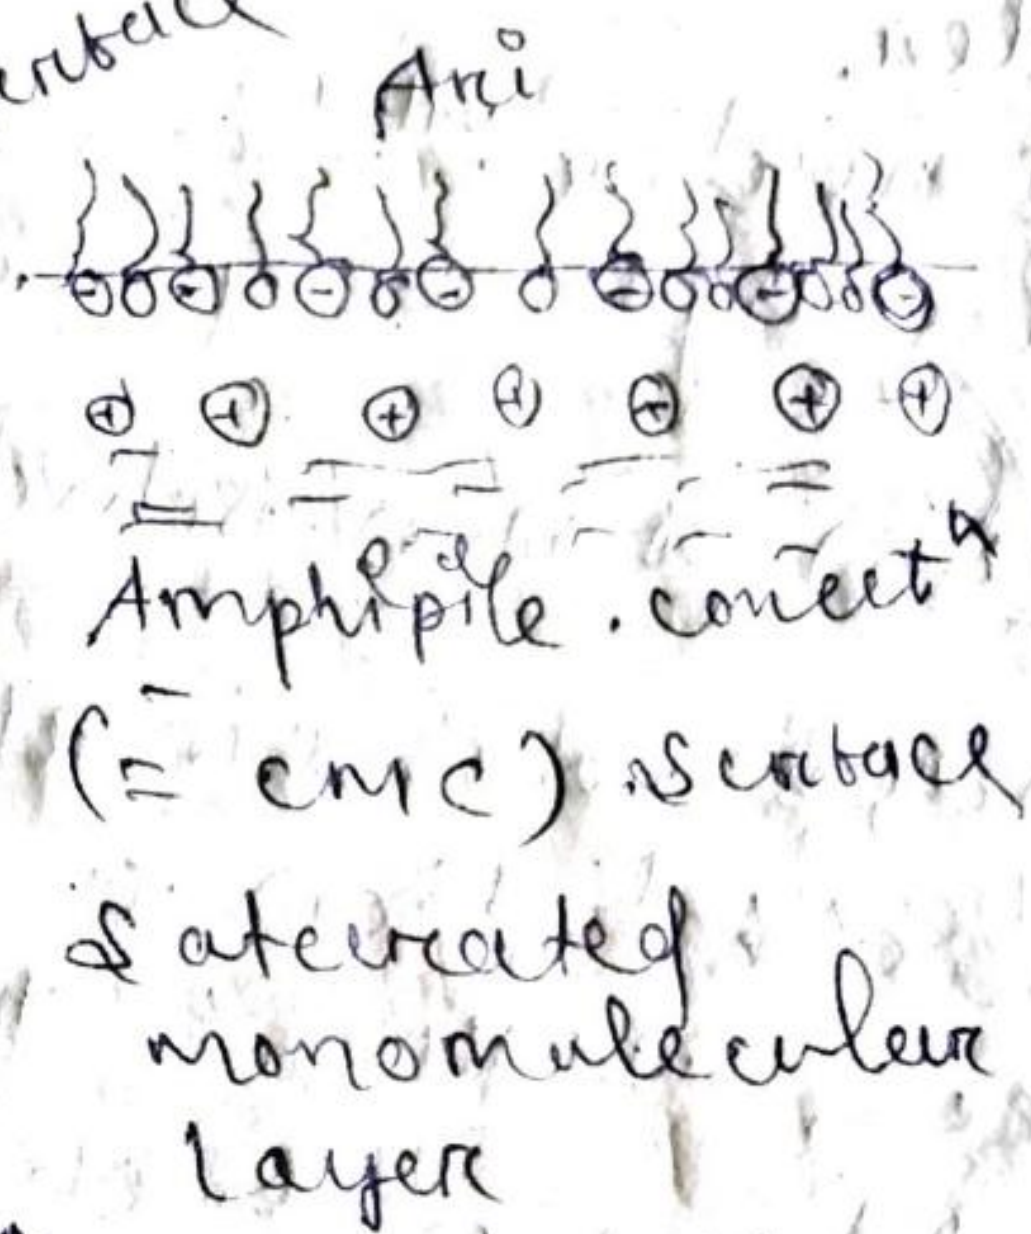 Ari
Amphipile . concetⁿ
(= cmc) surface
saturated
monomulecular
layer